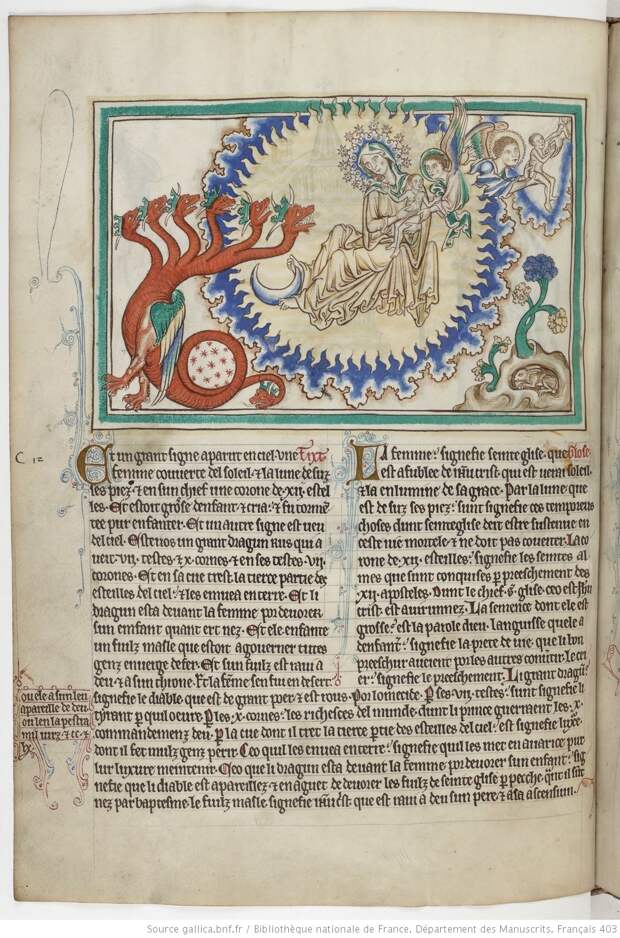 C 12
Et un grant signe aparut en ciel. une Tixt
femme couverte del soleil. & la lune de suz
ses piez. & en sun chief une corone de .xii. esteil
les. Et estoit grosse denfant & cria. & fu tormen
tee pur enfanter. Et un autre signe est veu
del ciel. Este vos un grant dragun rus qui a
veit .vii. testes & .x. cornes. & en ses testes .vii.
corones. Et en sa cue trest la tierce partie des
esteilles del ciel. & les envea en terre. Et li
dragun esta devant la femme por devorer
sun enfant quant ert nez. Et ele enfante
un fiulz masle que estoit a governer tutes
genz en verge de fer. Et sun fiulz est raui a
deu & a sun throne. Et la feme sen fui en desert
ou ele a sun leu
apareille de deu
La femme. signefie seinte glise. que Glose
est afublee de ihu crist. qui est verai soleil.
& la enlumine de sa grace. Par la lune que
est de suz ses piez. sunt signefie ces temporeus
choses dunt seinte glise deit estre sustenue en
ceste vie mortele & ne doit pas coveiter. La co
rone de .xii. esteilles. signefie les seintes al
mes que sunt conquises par preeschement des
.xii. apostles. Dunt le chief seinte glise ceo est ihu
crist est avirunnez. La semence dont ele est
grosse. est la parole dieu. Languisse quele a
denfant. signefie la pete de
preschur aveient por les autres convertir. Le cri
er. signefie le preeschement. Li grant dragun.
signefie le diable que est de grant poer. & est rous. Por lomecide. Par ses .vii. testes. sunt signefie li
tyrant par qui il oevre. Par les .x. cornes. les richesces del munde. dunt li prince guerreient les .x.
commandemenz deu. Par la cue dont il tret la tierce partie des esteilles del ciel. est signefie luxure
dont il fet mulz genz perir. Ceo quil les envea en terre. signefie quil les met en avarice pur
lur luxure meintenir. Ceo que li dragun esta devant la femme por devorer sun enfant. sig
nefie que li diable est apareillez & en aguet de devorer les fiulz de seinte glise par pecche. quant il sunt
nez par baptesme. le fiulz masle signefie ihu crist que est raui a deu sun pere. & a sa ascensiun.
Source gallica.bnf.fr / Bibliothèque nationale de France. Département des Manuscrits. Français 403